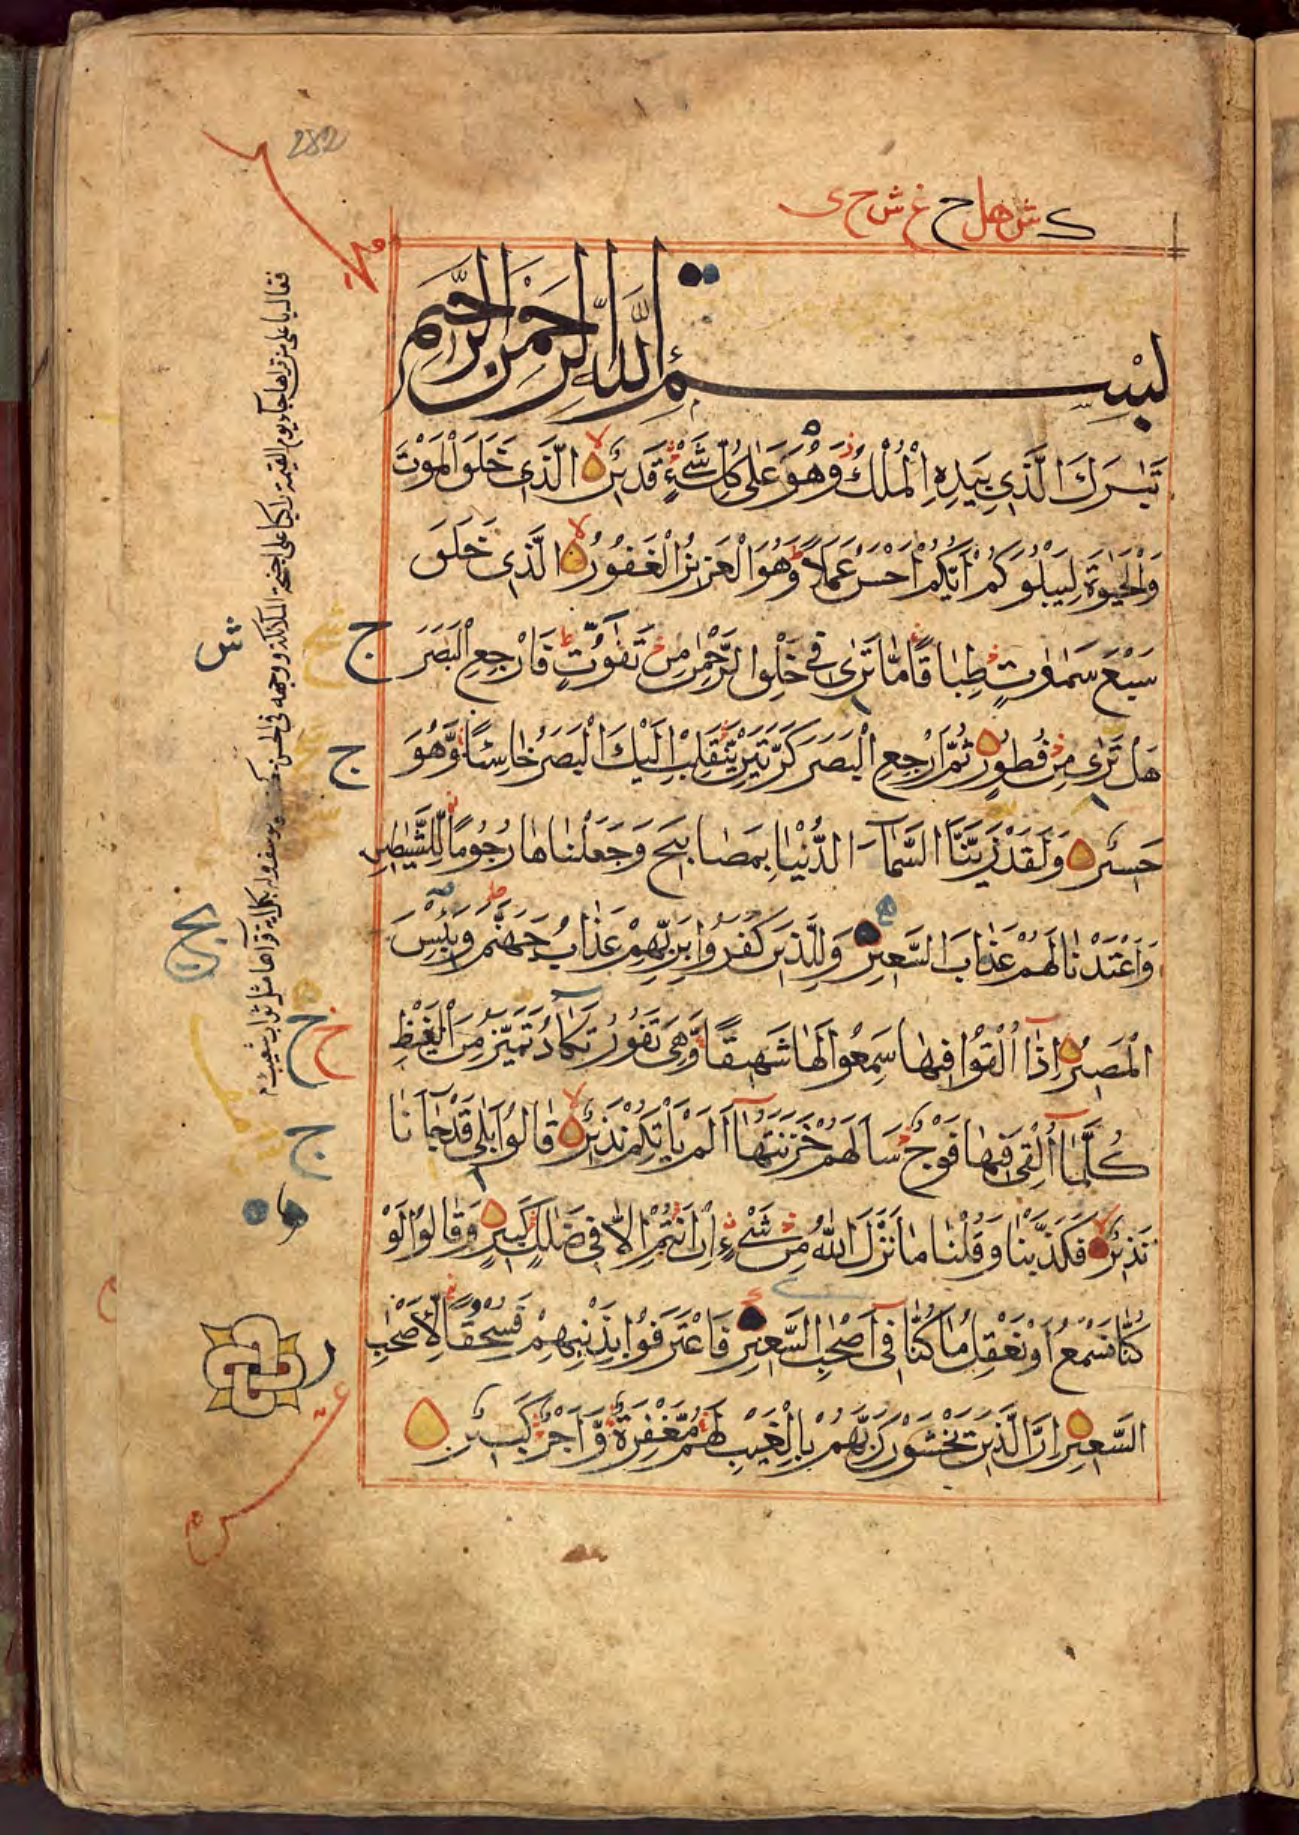 282
ک ش هل ح غ ش ح ی
بِسْمِ اللَّهِ الرَّحْمَنِ الرَّحِيمِ
تَبٰرَكَ الَّذِی بِيَدِهِ الْمُلْكُ وَهُوَ عَلٰی كُلِّ شَیْءٍ قَدِيْرٌ لا الَّذِی خَلَقَ الْمَوْتَ
وَالْحَيٰوةَ لِيَبْلُوَكُمْ اَيُّكُمْ اَحْسَنُ عَمَلًا ط وَهُوَ الْعَزِيْزُ الْغَفُوْرُ لا الَّذِی خَلَقَ
سَبْعَ سَمٰوٰتٍ طِبَاقًا مَّا تَرٰی فِی خَلْقِ الرَّحْمٰنِ مِنْ تَفٰوُتٍ ط فَارْجِعِ الْبَصَرَ
هَلْ تَرٰی مِنْ فُطُوْرٍ ثُمَّ ارْجِعِ الْبَصَرَ كَرَّتَيْنِ يَنْقَلِبْ اِلَيْكَ الْبَصَرُ خَاسِئًا وَّهُوَ
حَسِيْرٌ وَلَقَدْ زَيَّنَّا السَّمَآءَ الدُّنْيَا بِمَصَابِيْحَ وَجَعَلْنَاهَا رُجُوْمًا لِّلشَّيٰطِيْنِ
وَاَعْتَدْنَا لَهُمْ عَذَابَ السَّعِيْرِ وَلِلَّذِيْنَ كَفَرُوْا بِرَبِّهِمْ عَذَابُ جَهَنَّمَ وَبِئْسَ
الْمَصِيْرُ اِذَآ اُلْقُوْا فِيْهَا سَمِعُوْا لَهَا شَهِيْقًا وَّهِیَ تَفُوْرُ تَكَادُ تَمَيَّزُ مِنَ الْغَيْظِ
كُلَّمَآ اُلْقِیَ فِيْهَا فَوْجٌ سَاَلَهُمْ خَزَنَتُهَآ اَلَمْ يَاْتِكُمْ نَذِيْرٌ لا قَالُوْا بَلٰی قَدْ جَآءَنَا
نَذِيْرٌ لا فَكَذَّبْنَا وَقُلْنَا مَا نَزَّلَ اللّٰهُ مِنْ شَیْءٍ اِنْ اَنْتُمْ اِلَّا فِی ضَلٰلٍ كَبِيْرٍ وَقَالُوْا لَوْ
كُنَّا نَسْمَعُ اَوْ نَعْقِلُ مَا كُنَّا فِیٓ اَصْحٰبِ السَّعِيْرِ فَاعْتَرَفُوْا بِذَنْبِهِمْ فَسُحْقًا لِّاَصْحٰبِ
السَّعِيْرِ اِنَّ الَّذِيْنَ يَخْشَوْنَ رَبَّهُمْ بِالْغَيْبِ لَهُمْ مَّغْفِرَةٌ وَّاَجْرٌ كَبِيْرٌ
ج
ش
ج
ج